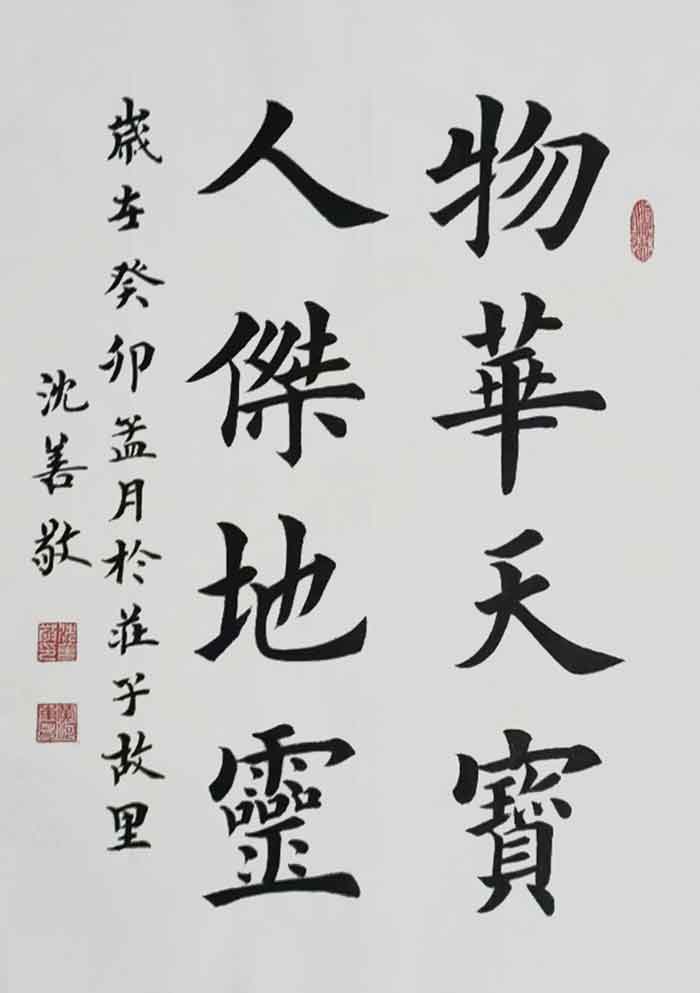 物華天寶
人傑地靈
歲在癸卯孟月於莊子故里
沈善敬